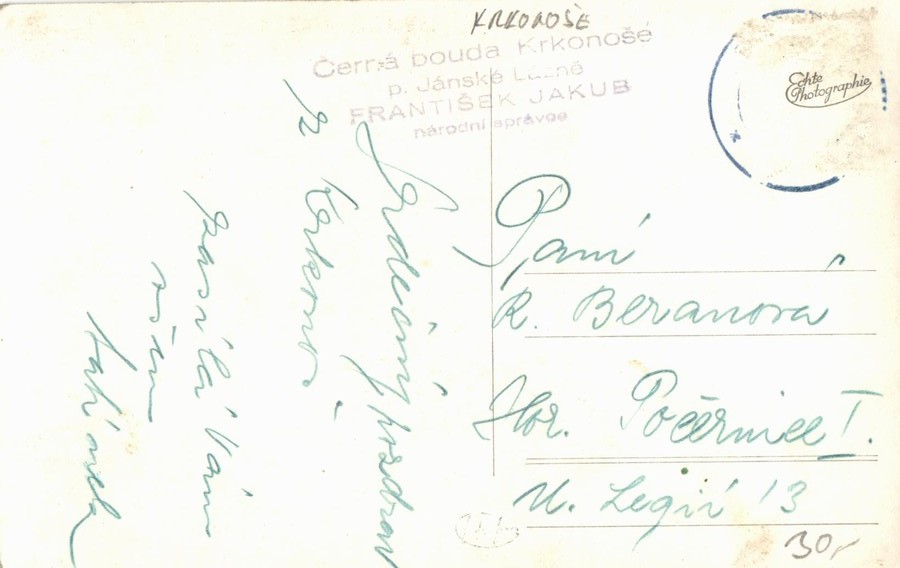 KRKONOŠE
Černá bouda Krkonoše
p. Jánské Lázně
FRANTIŠEK JAKUB
národní správce
Echte
Photographie
Srdečný pozdrav
z Krkonoš
zasílá Vám
všem
Paní
R. Beranová
Hor. Počernice I.
U. Legií 13
30,-